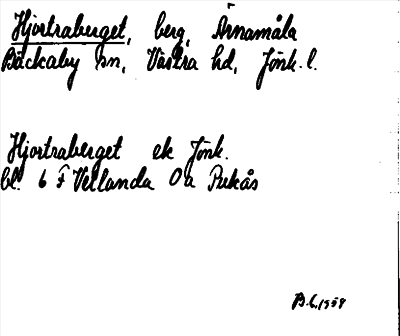 Hjortraberget, berg, Arnamåla
Bäckaby sn, Västra hd, Jönk. l.
Hjortraberget ek Jönk.
bl. 6 F Vetlanda 0a Pukås
B.L. 1958